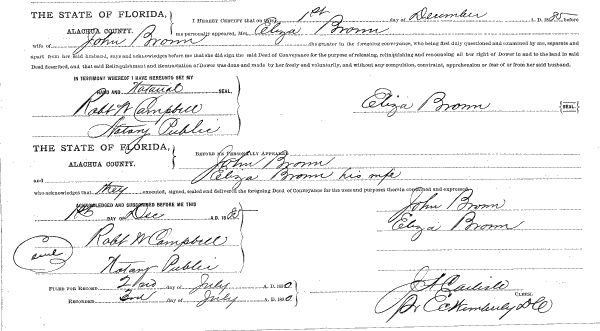 THE STATE OF FLORIDA,
ALACHUA COUNTY.
I HEREBY CERTIFY that on this 1st day of December A. D. 1885, before
me personally appeared, Mrs. Eliza Brown
wife of John Brown the grantor to the foregoing conveyance, who being first duly questioned and examined by me, separate and
apart from her said husband, say and acknowledge before me that she did sign the said Deed of Conveyance for the purpose of releasing, relinquishing and renouncing all her right of Dower in and to the land in said
Deed described, and that said Relinquishment and Renunciation of Dower was done and made by her freely and voluntarily, and without any compulsion, constraint, apprehension or fear of or from her said husband.
IN TESTIMONY WHEREOF I HAVE HEREUNTO SET MY
HAND AND Notarial SEAL.
Robt W Campbell
Notary Public
Eliza Brown SEAL.
THE STATE OF FLORIDA,
ALACHUA COUNTY.
BEFORE ME PERSONALLY APPEARED
John Brown
and Eliza Brown his wife
who acknowledges that they executed, signed, sealed and delivered the foregoing Deed of Conveyance for the uses and purposes therein contained and expressed.
ACKNOWLEDGED AND SUBSCRIBED BEFORE ME THIS
1st DAY OF Dec A. D. 1885
John Brown
Eliza Brown
Robt W Campbell
seal
Notary Public
FILED FOR RECORD 2nd day of July A. D. 1880
RECORDED 2nd day of July A. D. 1880
J A Carlisle
CLERK.
Pr E C Kimberly DC